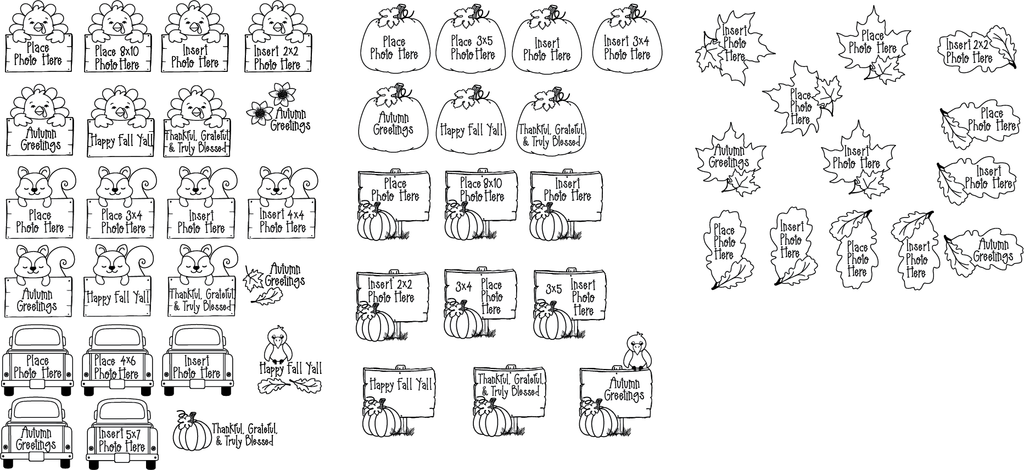 Place
Photo Here
Place 8x10
Photo Here
Insert
Photo Here
Insert 2x2
Photo Here
Autumn
Greetings
Happy Fall Y'all
Thankful, Grateful,
& Truly Blessed
Autumn
Greetings
Place
Photo Here
Place 3x4
Photo Here
Insert
Photo Here
Insert 4x4
Photo Here
Autumn
Greetings
Happy Fall Y'all
Thankful, Grateful,
& Truly Blessed
Autumn
Greetings
Place
Photo Here
Place 4x6
Photo Here
Insert
Photo Here
Happy Fall Y'all
Autumn
Greetings
Insert 5x7
Photo Here
Thankful, Grateful,
& Truly Blessed
Place
Photo Here
Place 3x5
Photo Here
Insert
Photo Here
Insert 3x4
Photo Here
Autumn
Greetings
Happy Fall Y'all
Thankful, Grateful,
& Truly Blessed
Place
Photo Here
Place 8x10
Photo Here
Insert
Photo Here
Insert 2x2
Photo Here
3x4
Place
Photo
Here
3x5
Insert
Photo
Here
Happy Fall Y'all
Thankful, Grateful,
& Truly Blessed
Autumn
Greetings
Insert
Photo
Here
Place
Photo Here
Insert 2x2
Photo Here
Place
Photo
Here
Place
Photo Here
Autumn
Greetings
Insert
Photo Here
Insert
Photo Here
Place
Photo
Here
Insert
Photo
Here
Place
Photo
Here
Insert
Photo
Here
Autumn
Greetings